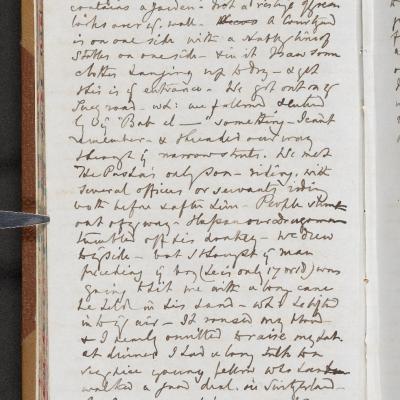 contains a garden - not a vestige of green
looks over its wall - A Courtyard
is on one side with a stable line of
Stables on one side - & in it I saw some
clothes hanging up to dry - & yet
this is ye entrance - We got out on ye
Suez road - wh: we followed & entered
by ye "Bab el -" something - I can't
remember - & threaded our way
through ye narrow streets. We met
The Pasha's only son - riding, with
several officers or servants riding
both before & after him - People shrunk
out of ye way - Hassan our dragoman
tumbled off his donkey - We drew
to ye side - but I thought ye man
preceding ye boy (he is only 17 or 18) was
going to hit me with a long cane
he held in his hand - wh: he lifted
into ye air - It roused my blood
& I nearly omitted to raise my hat.
at dinner I had a long talk to a
very nice young fellow who has
walked a good deal in Switzerland -